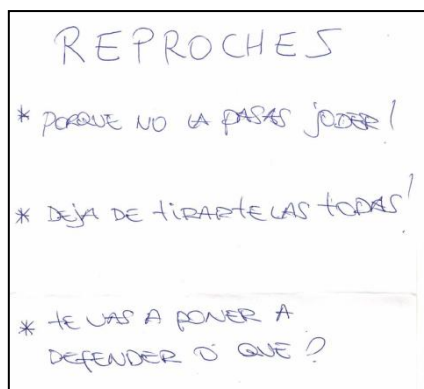 REPROCHES
* PORQUE NO LA PASAS JODER!
* DEJA DE TIRARTELAS TODAS!
* TE VAS A PONER A
DEFENDER O QUE?